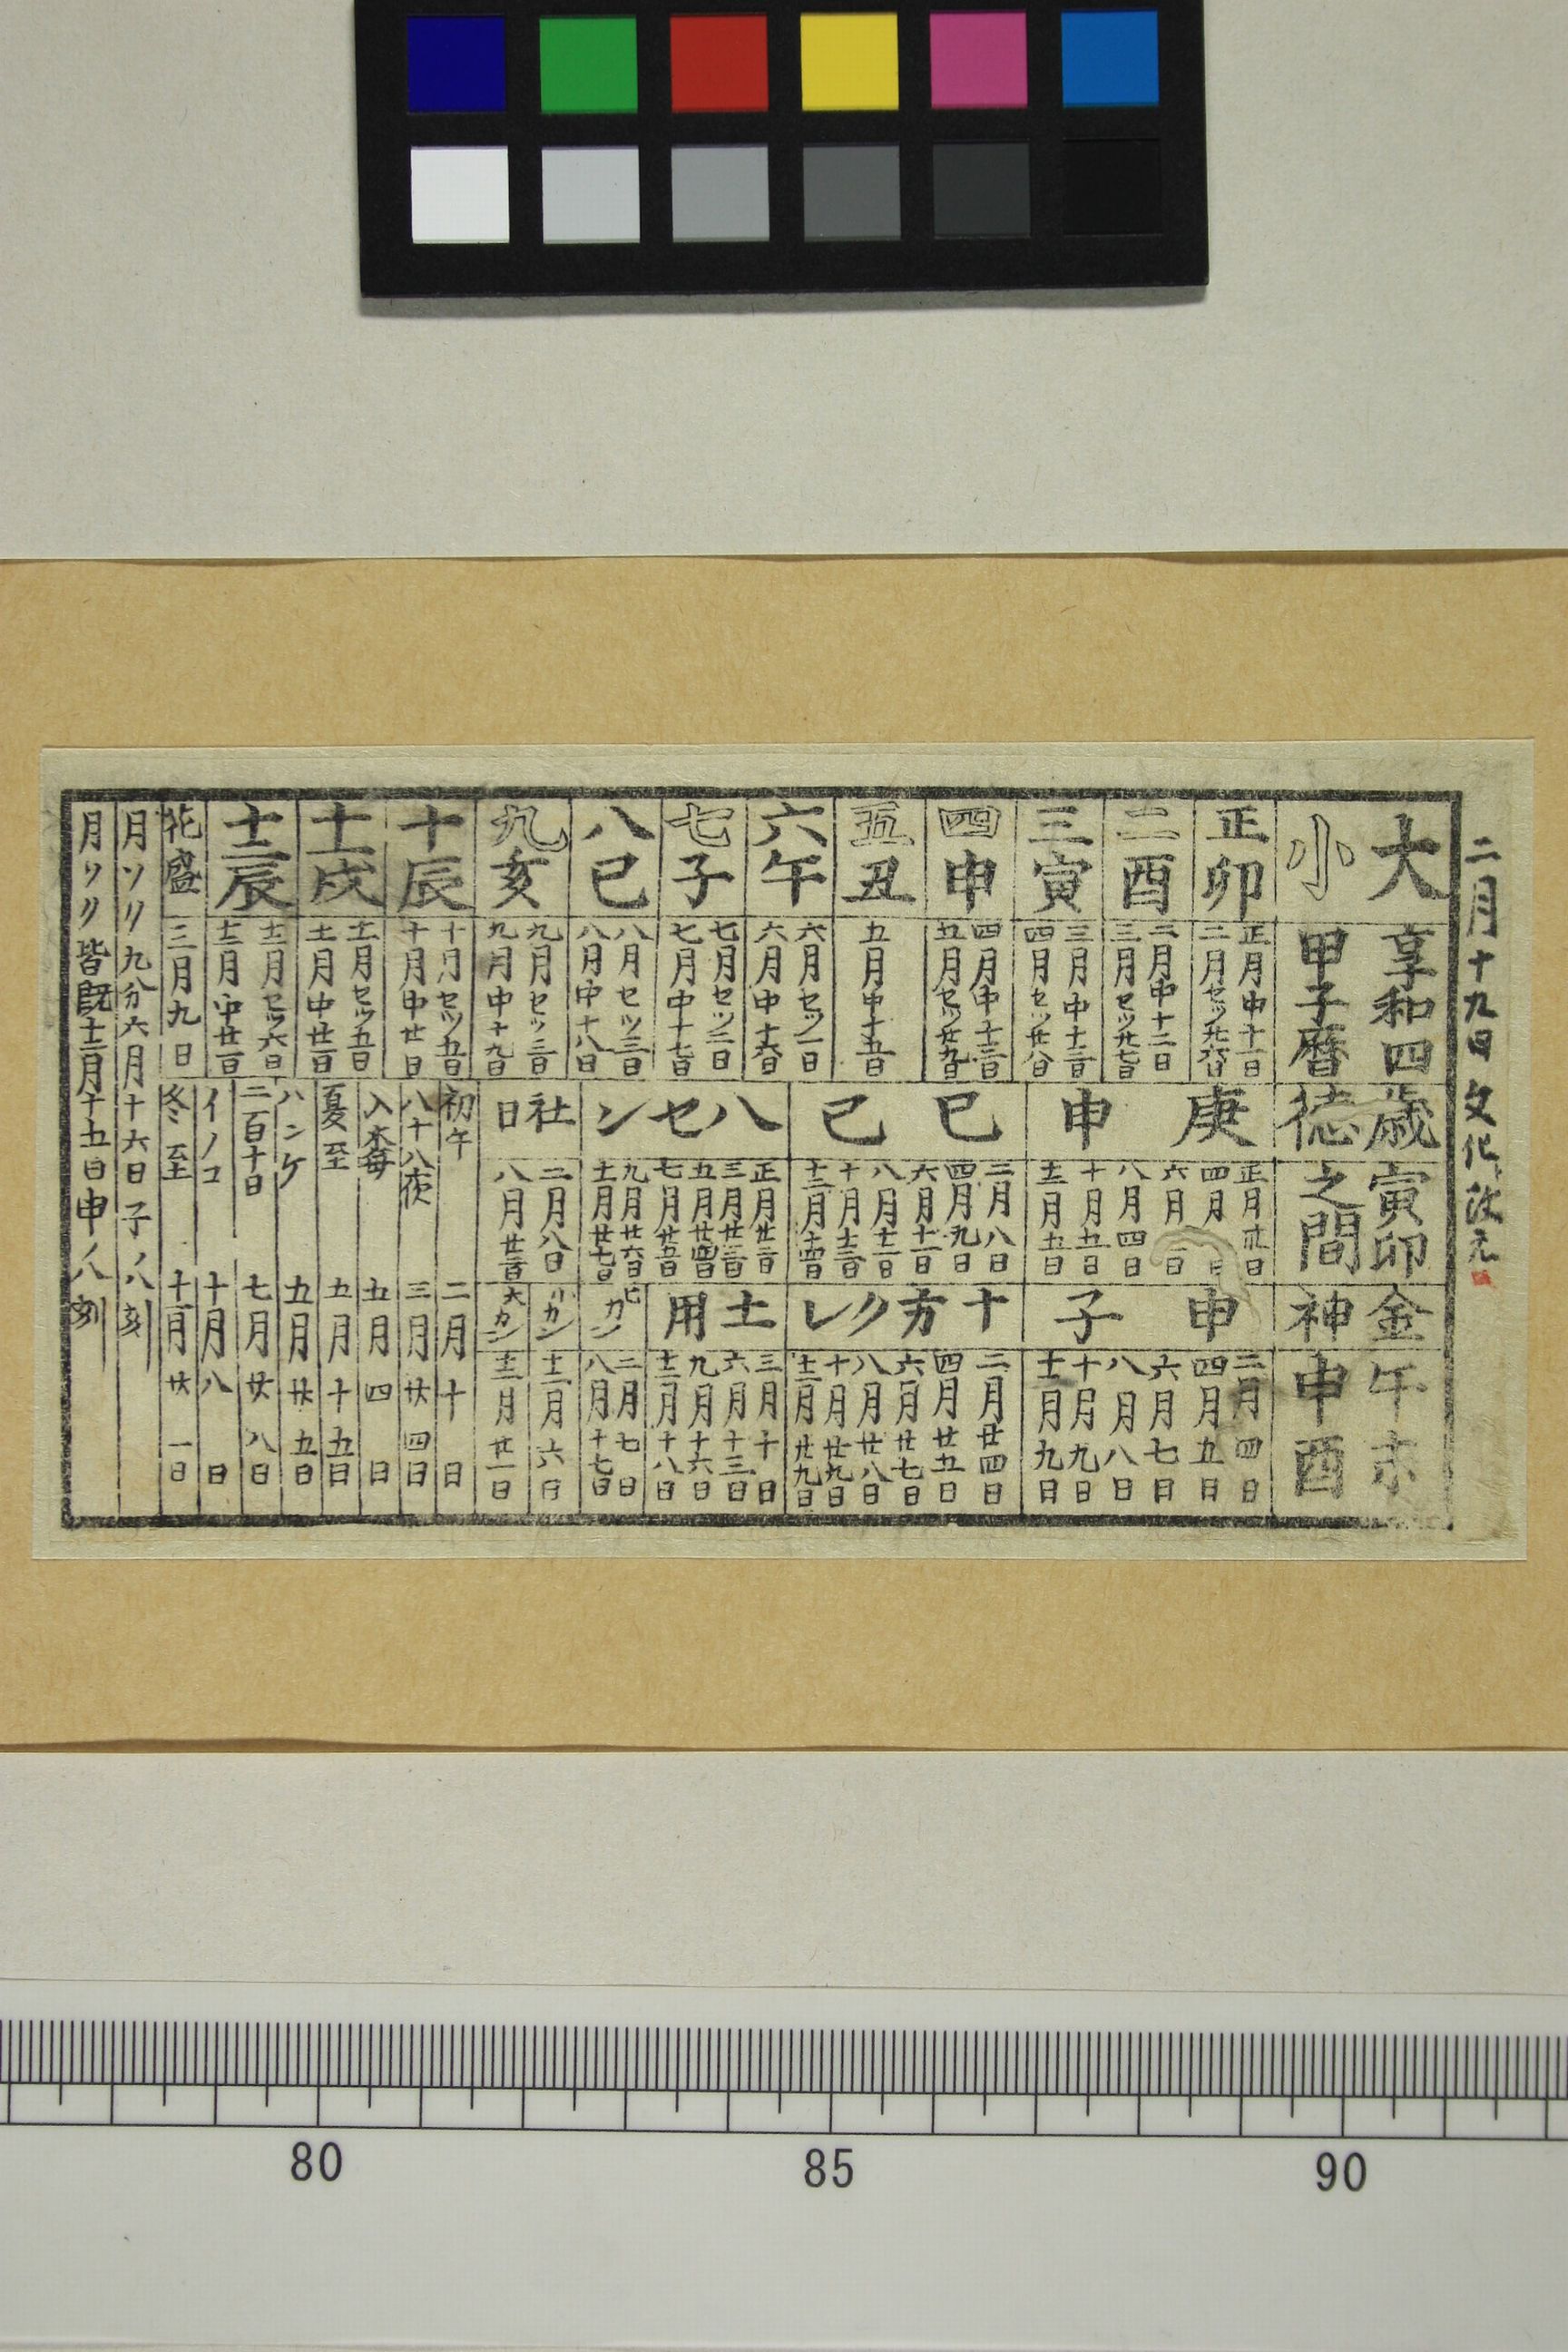 二月十九日文化ト改元
大 享和四
小 甲子暦
歳 寅卯
徳 之間
金 午未
神 申酉
正卯
正月中十一日
二月セツ廿六日
二酉
二月中十二日
三月セツ廿七日
三寅
三月中十二日
四月セツ廿八日
四申
四月中十三日
五月セツ廿九日
五丑
五月中十五日
六午
六月セツ一日
六月中十六日
七子
七月セツ二日
七月中十七日
八巳
八月セツ三日
八月中十八日
九亥
九月セツ三日
九月中十九日
十辰
十月セツ五日
十月中廿日
十一戌
十一月セツ五日
十一月中廿一日
十二辰
十二月セツ六日
十二月中廿一日
花盛
三月九日
庚申
正月廿日
四月日
六月二日
八月四日
十月五日
十二月五日
己巳
二月八日
四月九日
六月十一日
八月十二日
十月十三日
十二月十四日
八セン
正月廿二日
三月廿三日
五月廿四日
七月廿五日
九月廿六日
十一月廿七日
社日
二月八日
八月廿二日
申子
二月四日
四月五日
六月七日
八月八日
十月九日
十二月九日
十方クレ
二月廿四日
四月廿五日
六月廿七日
八月廿八日
十月廿九日
十二月廿九日
土用
三月十日
六月十三日
九月十六日
十二月十八日
ヒガン
二月七日
八月十七日
小カン
十二月六日
大カン
十二月廿一日
初午 二月十日
八十八夜 三月廿四日
入梅 五月四日
夏至 五月十五日
ハンケ 五月廿五日
二百十日 七月廿八日
イノコ 十月八日
冬至 十一月廿一日
月ソク九分六月十六日子ノ八刻
月ソク皆既十二月十五日申ノ八刻